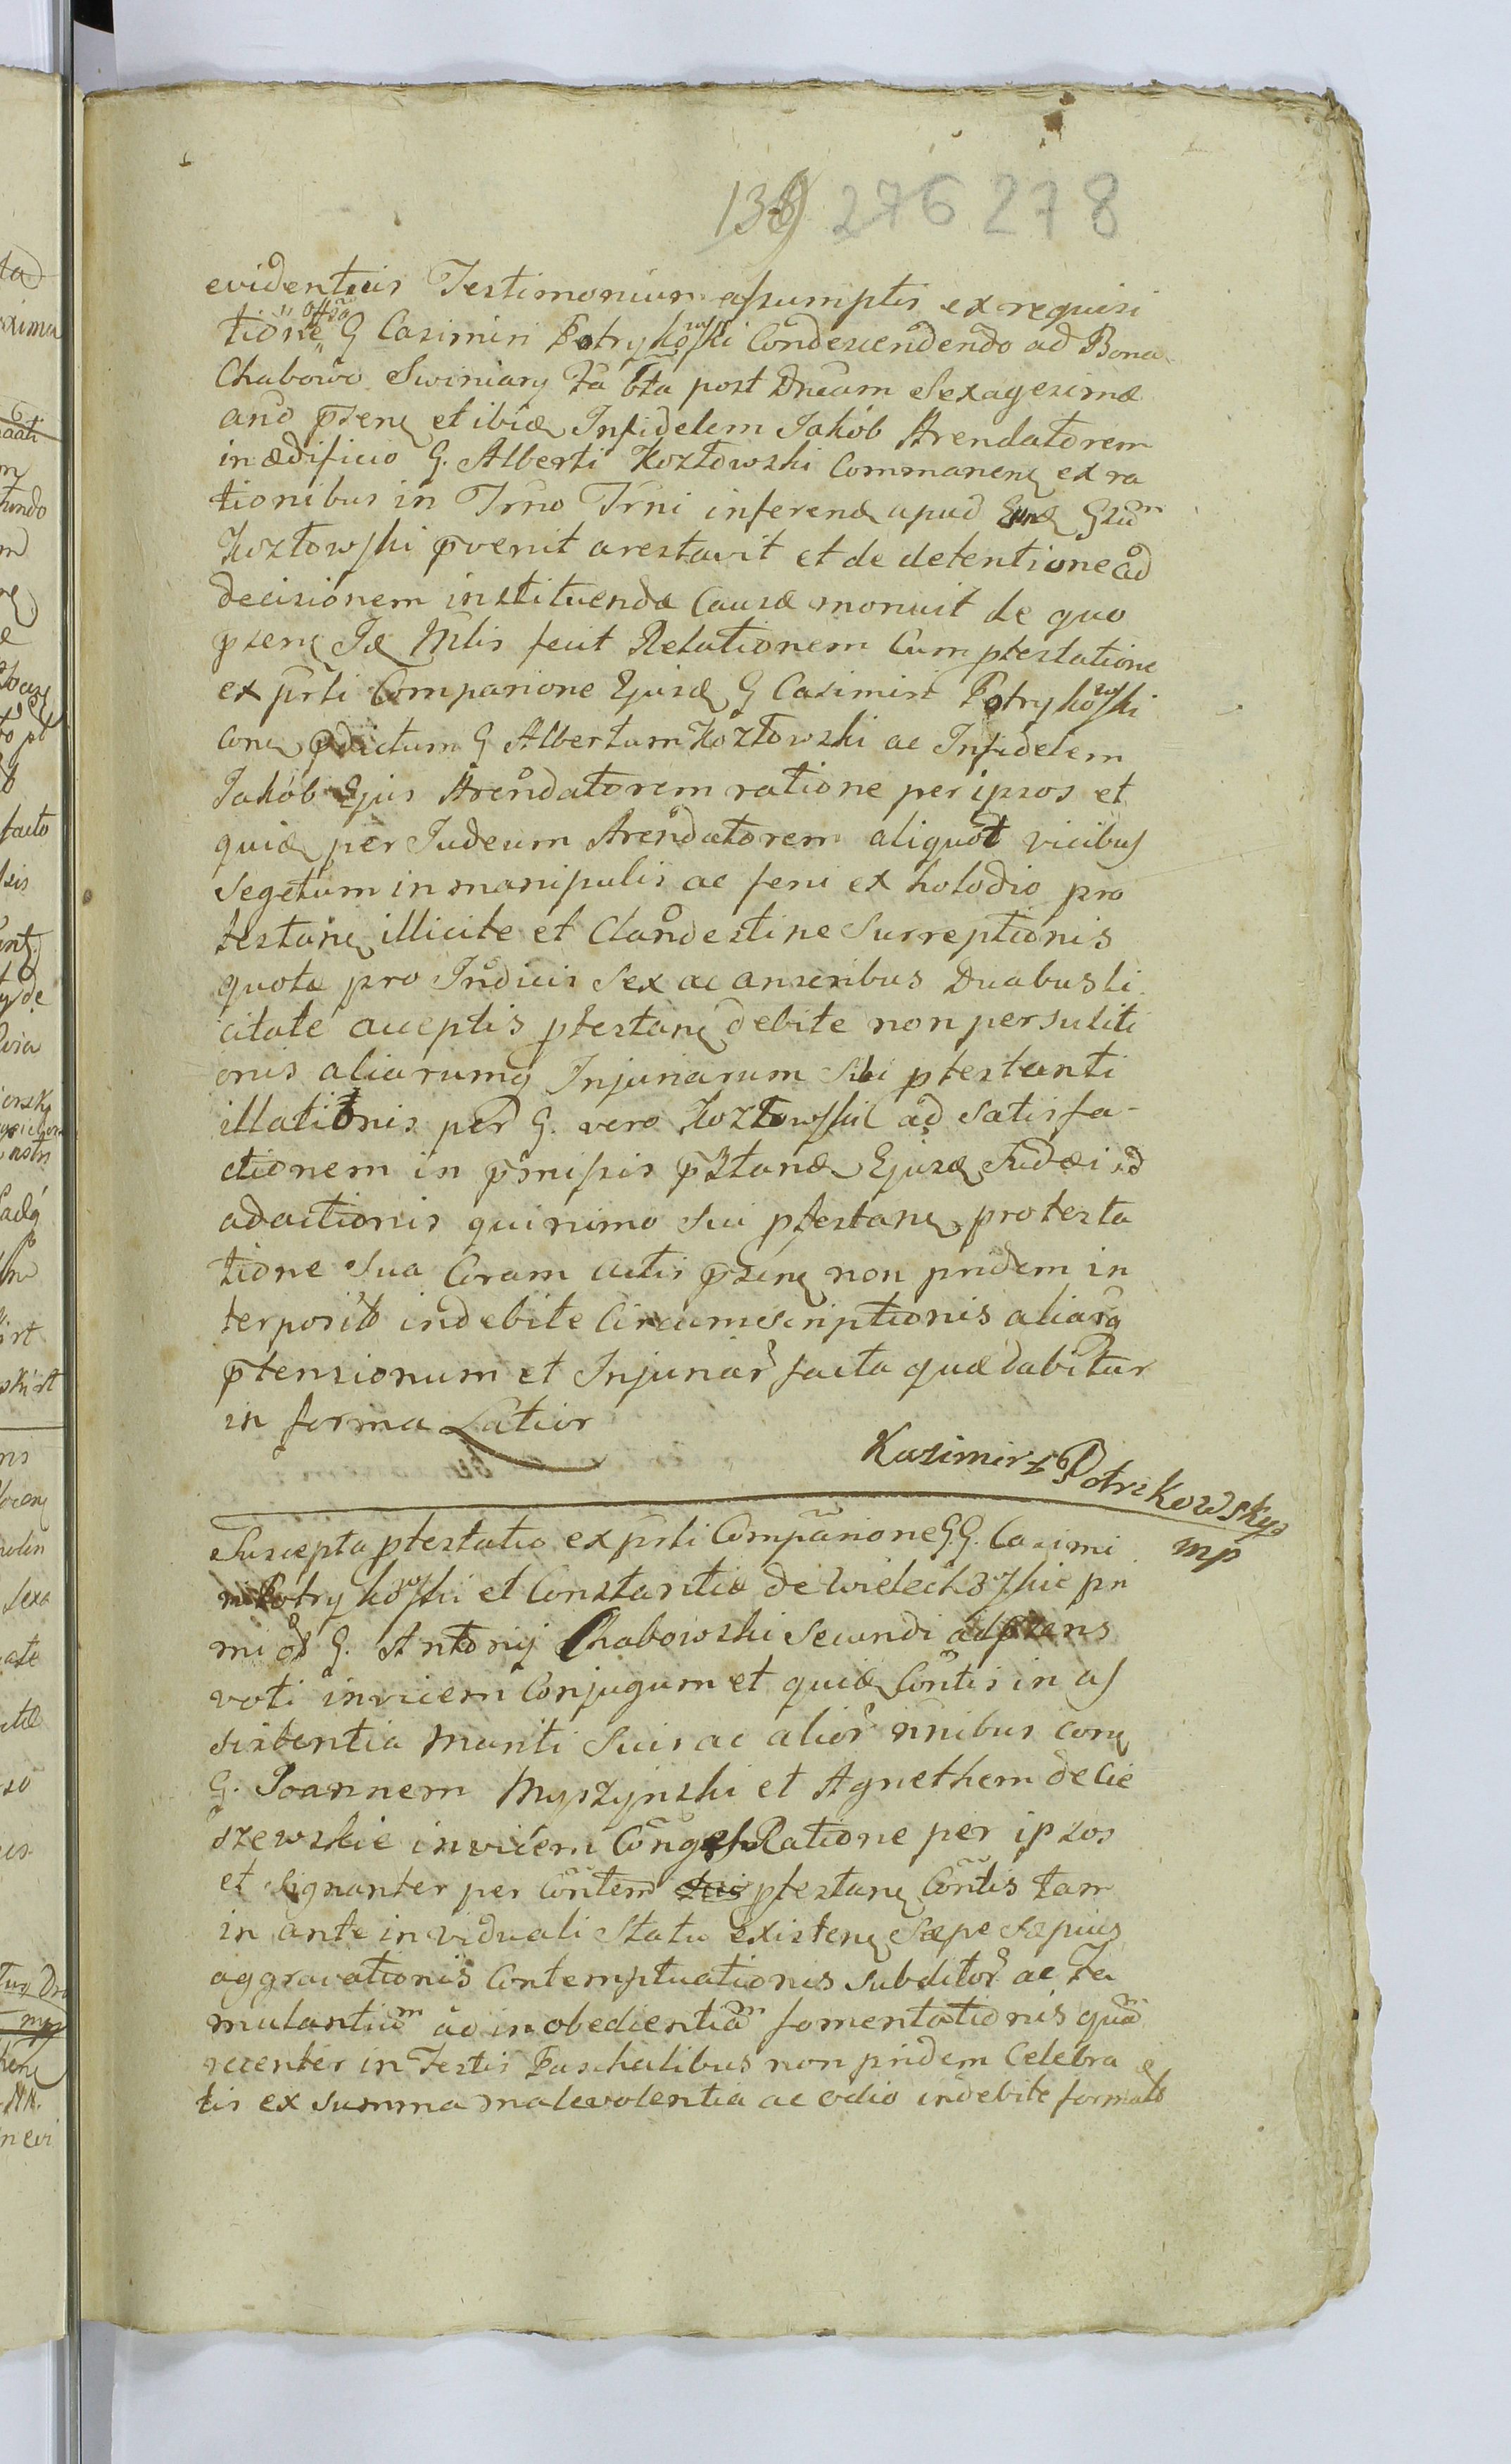 139 276 278
evidentiis Testimonium assumptis ex requisi
tione offsa G Casimiri Potrykowski Condescendendo ad Bona
Chabowo Swiniary Fa 6ta post Dncam Sexagesimæ
ano pnsenꝫ et ibidꝫ Infidelem Jakób Arendatorem
in ædificio G. Alberti Kozłowski Commanenꝫ ex ra
tionibus in Trno Trni inferendꝫ apud Eundꝫ Gsum
Kozłowski pvenit arestavit et de detentione ad
decisionem instituendæ Causæ monuit de quo
psenꝫ Idꝫ Mlis fecit Relationem Cum ptestatione
ex prsti Comparione Ejusdꝫ G Casimiri Potrykowski
conꝫ pdictum G Albertum Kozłowski ac Infidelem
Jakób Ejus Arendatorem ratione per ipsos et
quidꝫ per Judeum Arendatorem aliquot vicibus
Segetum in manipulis ac feni ex holodio pro
testanꝫ illicite et Clandestine Surreptionis
quota pro Indicis Sex ac anseribus Duabus li
citate acceptis ptestanꝫ debite non persoluti
onis aliarumq Injuriarum Sibi ptestanti
illationis per G. vero Kozłowski ad satisfa-
ctionem in pmissis pstandꝫ Ejusdꝫ Judæi
adactionis quinimo Sui ptestanꝫ protesta
tione Sua Coram actis psenꝫ non pridem in
terposito indebite Circumscriptionis aliarq
ptensionum et Injuriar facta quæ dabitur
in forma Latior
Kazimirz Potrzkowsky
mp
Suscepta ptestatio ex prsti Comparione G.G. Casimi
ri Potrykowski et Constantiæ de Wielechowskie pri
mi G. Antonij Chabowski Secundi ad psens
voti invicem Conjugum et quidꝫ Contis in as
sistentia Mariti Suis ac alior nnibus conꝫ
G. Joannem Myszynski et Agnethem de Cie
szewskie invicem Congess Ratione per ipsos
et Signanter per Contem ptestanꝫ Contis tam
in ante in viduali Statu existenꝫ Sæpe Sæpius
aggravationis Contemptuationis Subditor ac Fa
mulantium ad inobedientiam fomentationis quam
recenter in Festis Paschalibus non pridem Celebra
tis ex summa malevolentia ac odio indebite formato